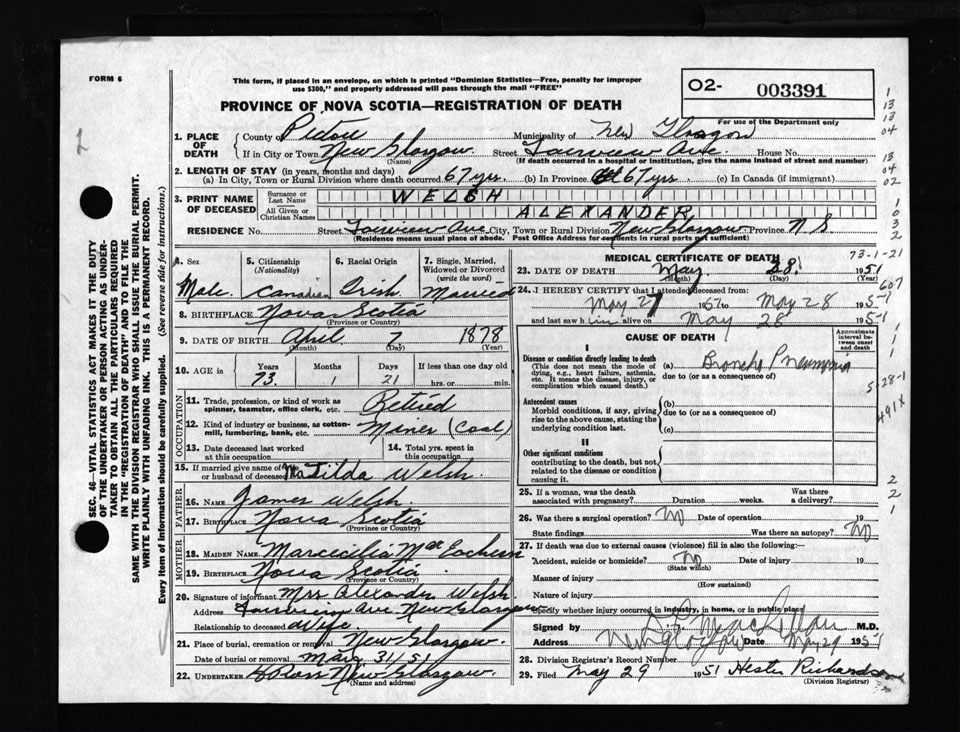 FORM 6
This form, if placed in an envelope, on which is printed "Dominion Statistics—Free, penalty for improper
use $300," and properly addressed will pass through the mail "FREE"
PROVINCE OF NOVA SCOTIA—REGISTRATION OF DEATH
O2- 003391
For use of the Department only
SEC. 46—VITAL STATISTICS ACT MAKES IT THE DUTY
OF THE UNDERTAKER OR PERSON ACTING AS UNDER-
TAKER TO OBTAIN ALL THE PARTICULARS REQUIRED
IN THE "REGISTRATION OF DEATH" AND TO FILE THE
SAME WITH THE DIVISION REGISTRAR WHO SHALL ISSUE THE BURIAL PERMIT.
WRITE PLAINLY WITH UNFADING INK. THIS IS A PERMANENT RECORD.
Every item of information should be carefully supplied. (See reverse side for instructions.)
1. PLACE OF DEATH
County of Pictou Municipality of New Glasgow
If in City or Town New Glasgow. Street Fairview Ave. House No.
(Name) (If death occurred in a hospital or institution, give the name instead of street and number)
2. LENGTH OF STAY (in years, months and days)
(a) In City, Town or Rural Division where death occurred 67 yrs. (b) In Province 67 yrs. (c) In Canada (if immigrant)
3. PRINT NAME OF DECEASED
Surname or Last Name WELSH
All Given or Christian Names ALEXANDER
RESIDENCE No. Street Fairview Ave City, Town or Rural Division New Glasgow Province N S
(Residence means usual place of abode. Post Office Address for residents in rural parts not sufficient)
4. Sex 5. Citizenship (Nationality) 6. Racial Origin 7. Single, Married, Widowed or Divorced (write the word)
Male Canadian Irish Married
8. BIRTHPLACE Nova Scotia
(Province or Country)
9. DATE OF BIRTH April 7 1878
(Month) (Day) (Year)
10. AGE in Years Months Days If less than one day old
73 1 21 hrs. or min.
OCCUPATION
11. Trade, profession, or kind of work as spinner, teamster, office clerk, etc. Retired
12. Kind of industry or business, as cotton-mill, lumbering, bank, etc. Miner (Coal)
13. Date deceased last worked at this occupation
14. Total yrs. spent in this occupation
15. If married give name of wife or husband of deceased Matilda Welsh.
FATHER
16. NAME James Welsh.
17. BIRTHPLACE Nova Scotia
(Province or Country)
MOTHER
18. MAIDEN NAME
19. BIRTHPLACE Nova Scotia
(Province or Country)
20. Signature of informant Mrs Alexander Welsh.
Address Fairview Ave. New Glasgow
Relationship to deceased Wife.
21. Place of burial, cremation or removal New Glasgow.
Date of burial or removal May 31/51
22. UNDERTAKER New Glasgow.
(Name and address)
MEDICAL CERTIFICATE OF DEATH
23. DATE OF DEATH May 28 1951
(Month) (Day)
24. I HEREBY CERTIFY that I attended deceased from:
May 27 1951 to May 28 1951
and last saw him alive on May 28 1951
CAUSE OF DEATH
Approximate interval between onset and death
I
Disease or condition directly leading to death
(This does not mean the mode of dying, e.g., heart failure, asthenia, etc. It means the disease, injury, or complication which caused death.)
(a) Broncho Pneumonia
due to (or as a consequence of)
Antecedent causes
Morbid conditions, if any, giving rise to the above cause, stating the underlying condition last.
(b)
due to (or as a consequence of)
(c)
II
Other significant conditions
contributing to the death, but not related to the disease or condition causing it.
25. If a woman, was the death associated with pregnancy? Duration weeks. Was there a delivery?
26. Was there a surgical operation? No Date of operation 19
State findings Was there an autopsy? No
27. If death was due to external causes (violence) fill in also the following:—
Accident, suicide or homicide? No Date of injury 19
(State which)
Manner of injury
(How sustained)
Nature of injury
Specify whether injury occurred in industry, in home, or in public place
Signed by M.D.
Address New Glasgow Date May 29 1951
28. Division Registrar's Record Number
29. Filed May 29 1951 Hester Richardson
(Division Registrar)
73-1-21
607
5-28-1
491X